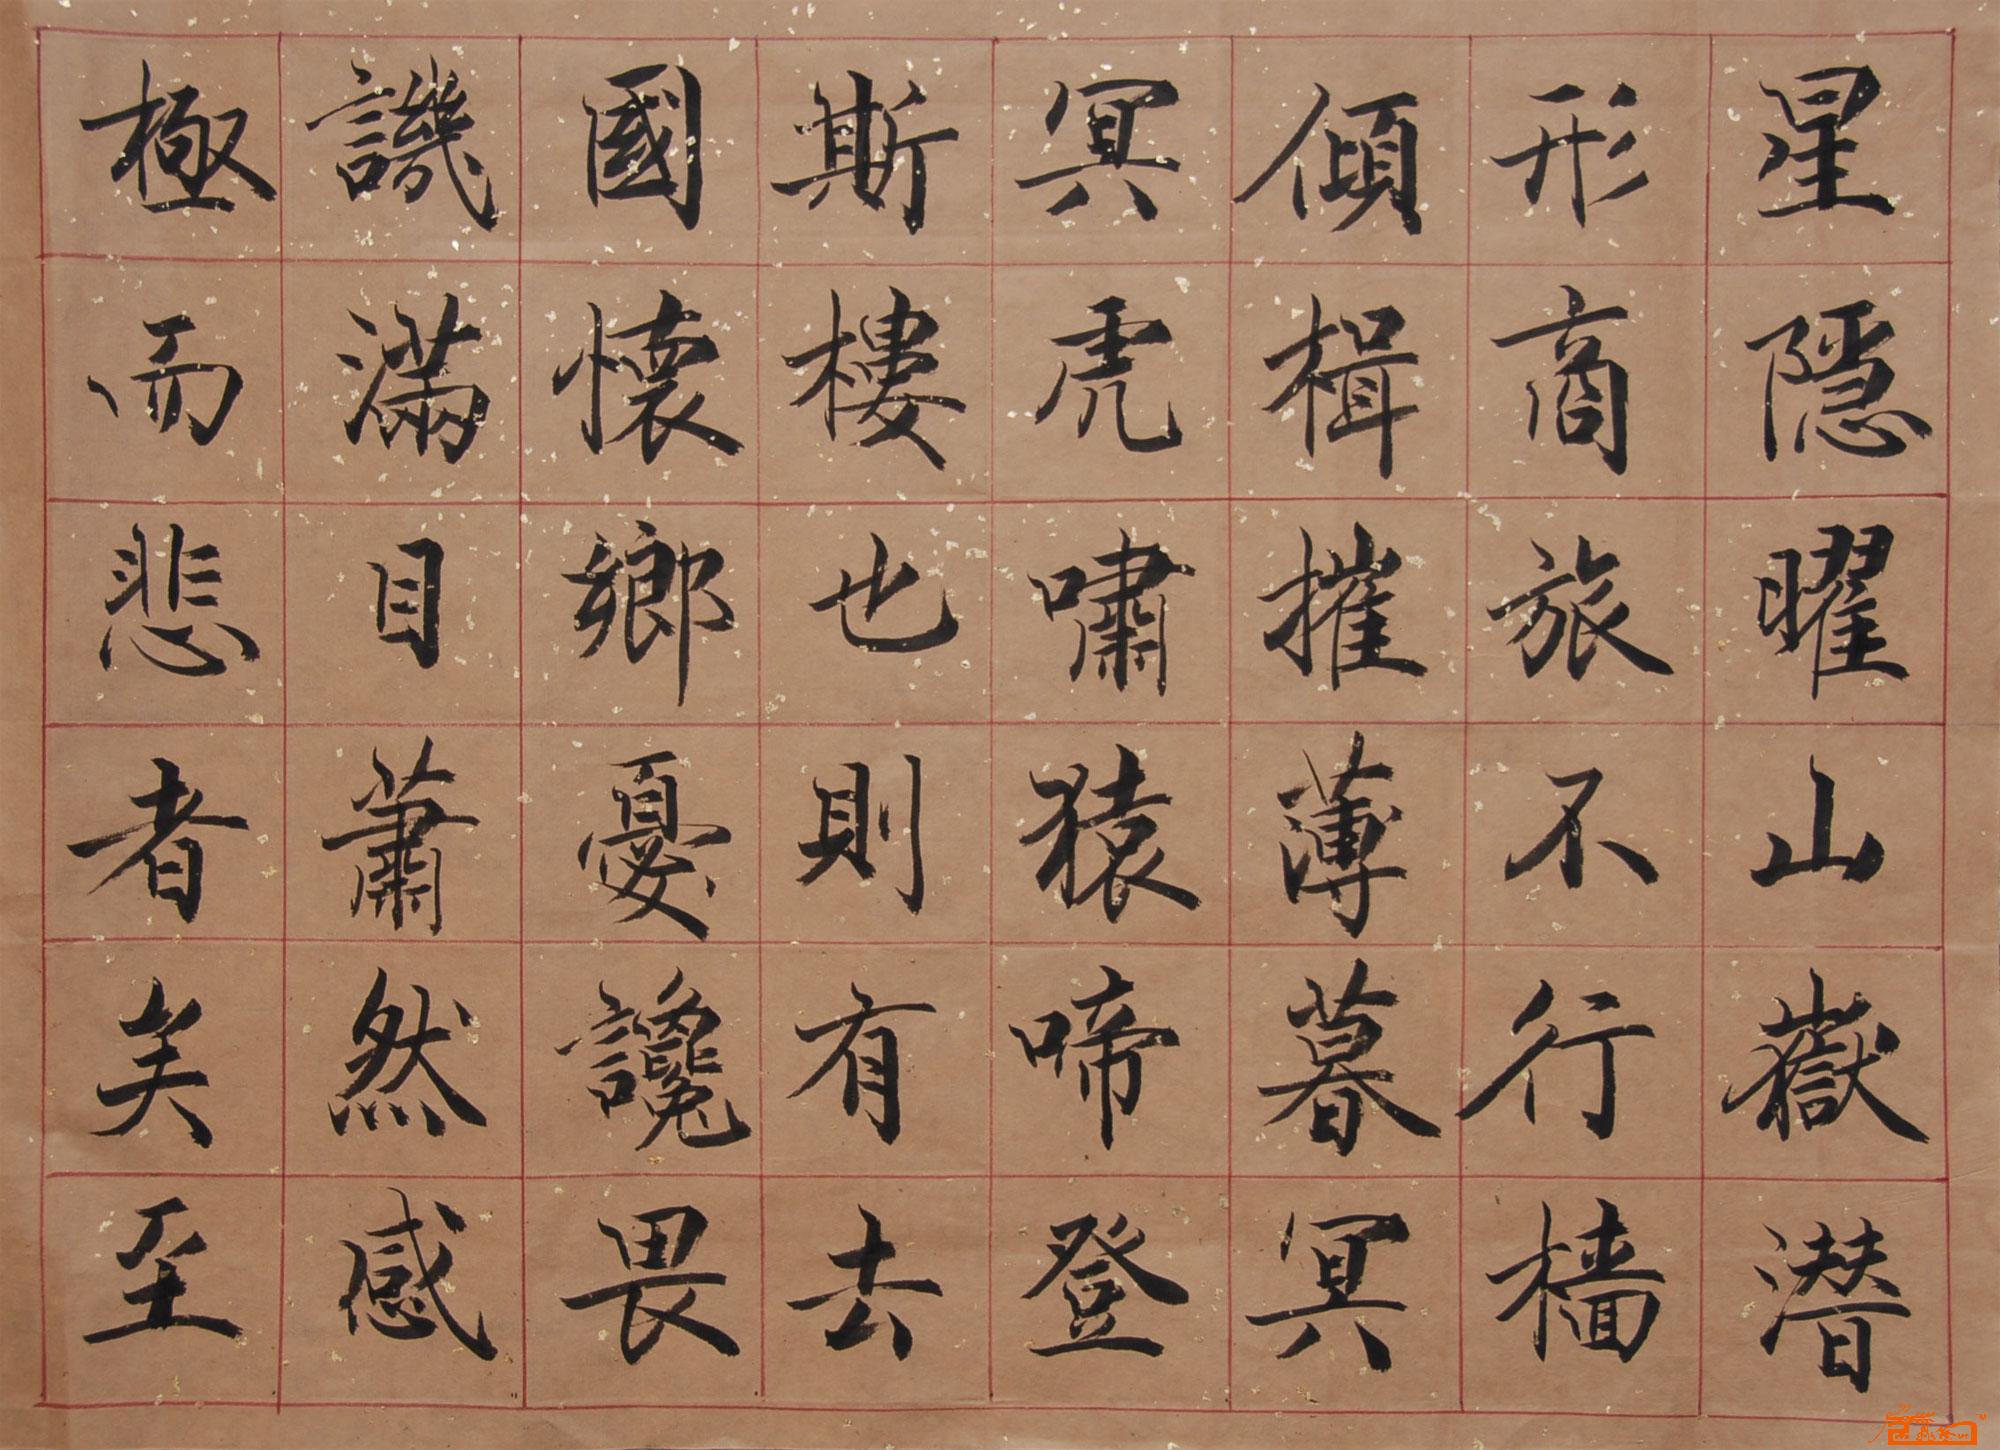 星隱曜山嶽潛
形商旅不行檣
傾楫摧薄暮冥
冥虎嘯猿啼登
斯樓也則有去
國懷鄉憂讒畏
譏滿目蕭然感
極而悲者矣至